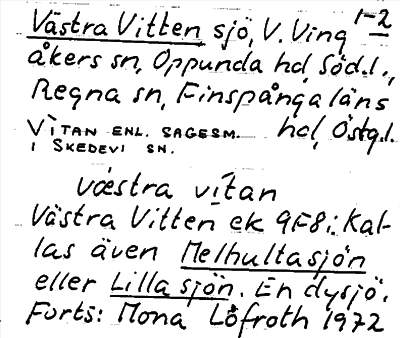 Västra Vitten sjö, V. Ving 1-2
åkers sn, Oppunda hd, Söd.l.,
Regna sn, Finspånga läns
VÌTAN ENL. SAGESM. hd, Östg.l.
I SKEDEVI SN.
væ̀stra vı̀tan
Västra Vitten ek 9F8i: Kal-
las även Melhultasjön
eller Lilla sjön. En dysjö.
Forts: Mona Löfroth 1972